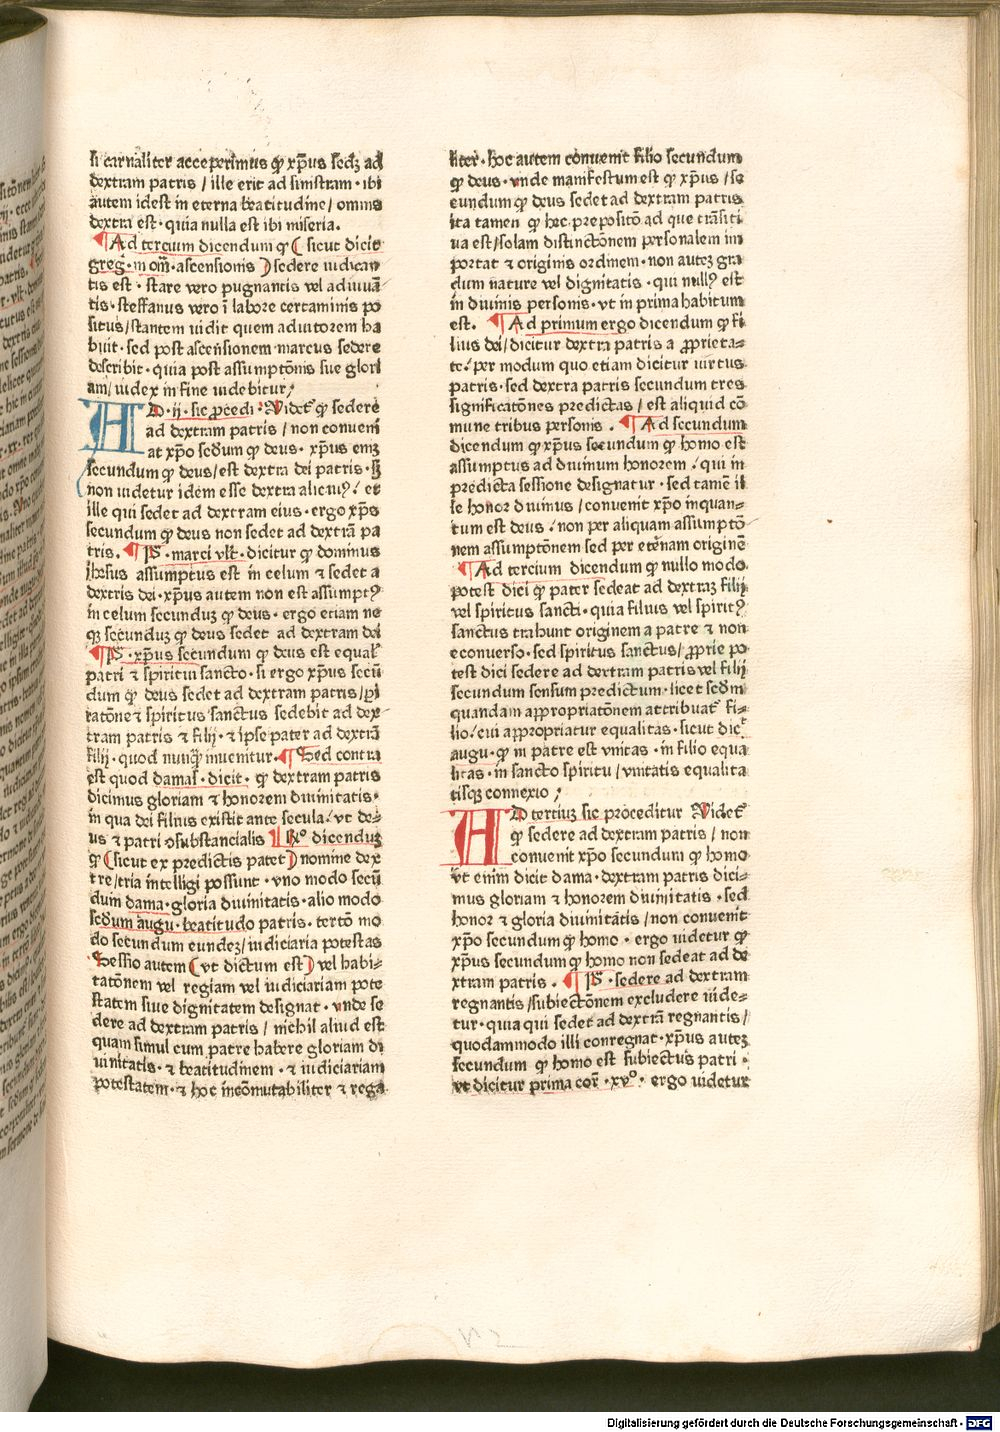 si carnaliter acceperimus ꝙ xp̄us sedꝫ ad
dextram patris / ille erit ad sinistram · ibi
autem idest in eterna beatitudine / omnis
dextra est · quia nulla est ibi miseria.
¶ Ad tercium dicendum ꝙ ( sicut dicit
greg̃ · in om̄ · ascensionis ) sedere iudican
tis est · stare vero pugnantis vel adiuuā
tis · steffanus vero ī labore certaminis po
situs / stantem uidit quem adiutorem ha
buit · sed post ascēsionem marcus sedere
describit · quia post assumptōnis sue glori
am / iudex in fine uidebitur ;
AD · ij · sic ꝓcedi᷑ · Uidet᷑ ꝙ sedere
ad dextram patris / non conueni
at xp̄o scd̄um ꝙ deus · xp̄us em̄
secundum ꝙ deus / est dextra dei patris · sꝫ
non uidetur idem esse dextra alicuiꝰ · et
ille qui sedet ad dextram eius · ergo xp̄s
secundum ꝙ deus non sedet ad dextrā pa
tris. ¶ P̄S · marci vlt̄ · dicitur ꝙ dominus
ihesus assumptus est in celum ⁊ sedet a
dextris dei · xp̄us autem non est assumptꝰ
in celum secunduꝫ ꝙ deus · ergo etiam ne
qꝫ secunduꝫ ꝙ deus sedet ad dextram dei
¶ P̄S · xp̄us secundum ꝙ deus est equal᷑
patri ⁊ spiritui sancto · si ergo xp̄us secū
dum ꝙ deus sedet ad dextram patris / pi
ratōne ⁊ spiritus sanctus sedebit ad dex
tram patris ⁊ filij · ⁊ ipse pater ad dextrā
filij · quod nunqͣ̄ inuenitur. ¶ Sed contra
est quod damas᷑ · dicit · ꝙ dextram patris
dicimus gloriam ⁊ honorem diuinitatis ·
in qua dei filius existit ante secula · ut de⸗
us ⁊ patri ↄsubstancialis ¶ Rͦ dicenduꝫ
ꝙ ( sicut ex predictis patet ) nomine dex
tre / tria intelligi possunt · vno modo secū
dum dama · gloria diuinitatis · alio modo
scd̄um augu · beatitudo patris · tertō mo
do secundum eundeꝫ / iudiciaria potestas
Sessio autem ( vt dictum est ) vel habi⸗
tatōnem vel regiam vel iudiciariam pote
statem siue dignitatem designat · vnde se
dere ad dextram patris / nichil aliud est
quam simul cum patre habere gloriam di
uinitatis · ⁊ beatitudinem · ⁊ iudiciariam
potestatem · ⁊ hoc incōmutabiliter ⁊ rega
liter · hoc autem conuenit filio secundum
ꝙ deus · vnde manifestum est ꝙ xp̄us / se
cundum ꝙ deus sedet ad dextram patris
ita tamen ꝙ hec prepositō ad que trāsiti
ua est / solam distinctōnem personalem im
portat ⁊ originis ordinem · non auteꝫ gra
dum nature vel dignitatis · qui nullꝰ est
in diuinis personis · vt in prima habitum
est. ¶ Ad primum ergo dicendum ꝙ fi
lius dei / dicitur dextra patris a ꝓprieta⸗
te / per modum quo etiam dicitur uirtus
patris · sed dextra patris secundum tres
significatōnes predictas / est aliquid cō
mune tribus personis . ¶ Ad secundum
dicendum ꝙ xp̄us secundum ꝙ homo est
assumptus ad diuinum honorem / qui in
predicta sessione designatur · sed tamē il
le honor diuinus / conuenit xp̄o inquan⸗
tum est deus / non per aliquam assumptō
nem assumptōnem sed per etēnam originē
¶ Ad tercium dicendum ꝙ nullo modo
potest dici ꝙ pater sedeat ad dextraꝫ filij
vel spiritus sancti · quia filius vel spiritꝰ
sanctus trahunt originem a patre ⁊ non
econuerso · sed spiritus sanctus / ꝓprie po
test dici sedere ad dextram patris vel filij
secundum sensum predictum · licet scd̄m
quandam appropriatōnem attribuat᷑ fi⸗
lio / cui appropriatur equalitas · sicut dic᷑
augu · ꝙ in patre est vnitas · in filio equa
litas · in sancto spiritu / vnitatis equalita
tisqꝫ connexio ;
AD tertiuꝫ sic proceditur Uidet᷑
ꝙ sedere ad dextram patris / non
conuenit xp̄o secundum ꝙ homo
vt enim dicit dama · dextram patris dici⸗
mus gloriam ⁊ honorem diuinitatis · sed
honor ⁊ gloria diuinitatis / non conuenit
xp̄o secundum ꝙ homo · ergo uidetur ꝙ
xp̄us secundum ꝙ homo non sedeat ad de
xtram patris . ¶ P̄S · sedere ad dextram
regnantis / subiectōnem excludere uide⸗
tur · quia qui sedet ad dextrā regnantis /
quodammodo illi conregnat · xp̄us auteꝫ
secundum ꝙ homo est subiectus patri ·
vt dicitur prima cor᷑ · xvͦ · ergo uidetur
Digitalisierung gefördert durch die Deutsche Forschungsgemeinschaft - DFG